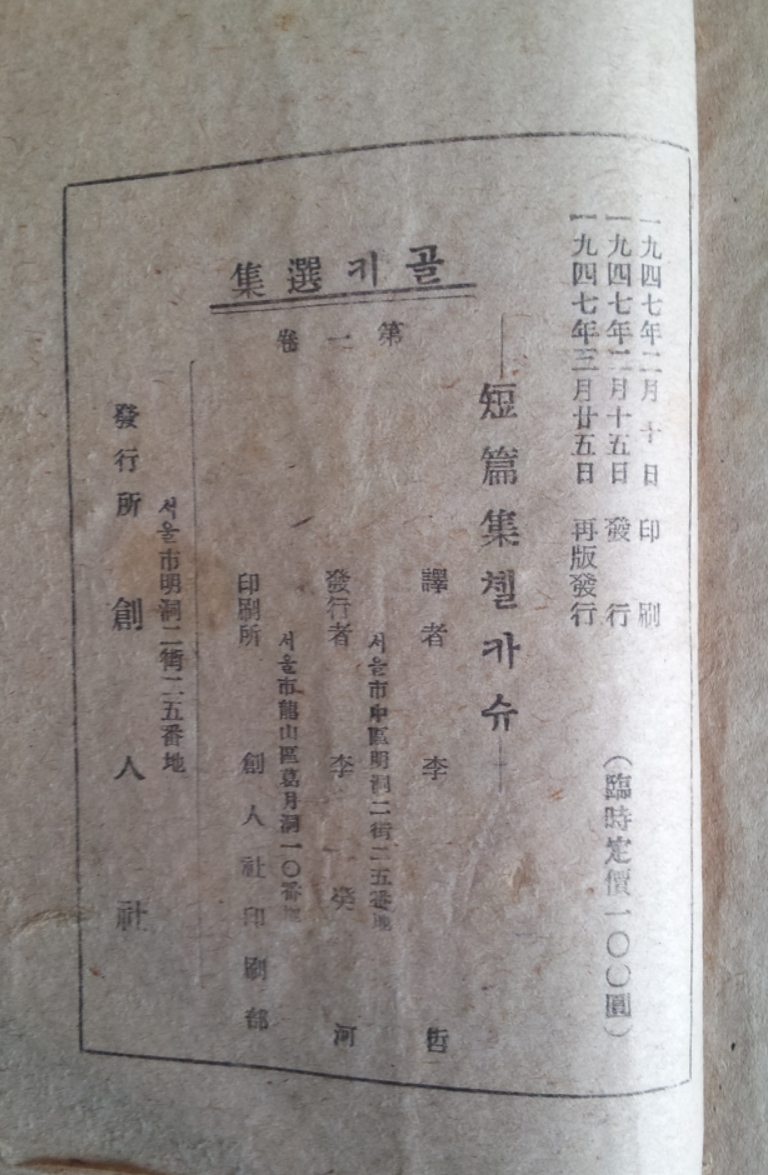 一九四七年二月十日 印刷
一九四七年二月十五日 發行
一九四七年三月廿五日 再版發行
(臨時定價一〇〇圓)
골키選集
第一卷
短篇集첼카슈
譯者 李哲
서울市中區明洞二街二五番地
發行者 李癸河
서울市龍山區葛月洞一〇番地
印刷所 創人社印刷部
서울市明洞二街二五番地
發行所 創人社